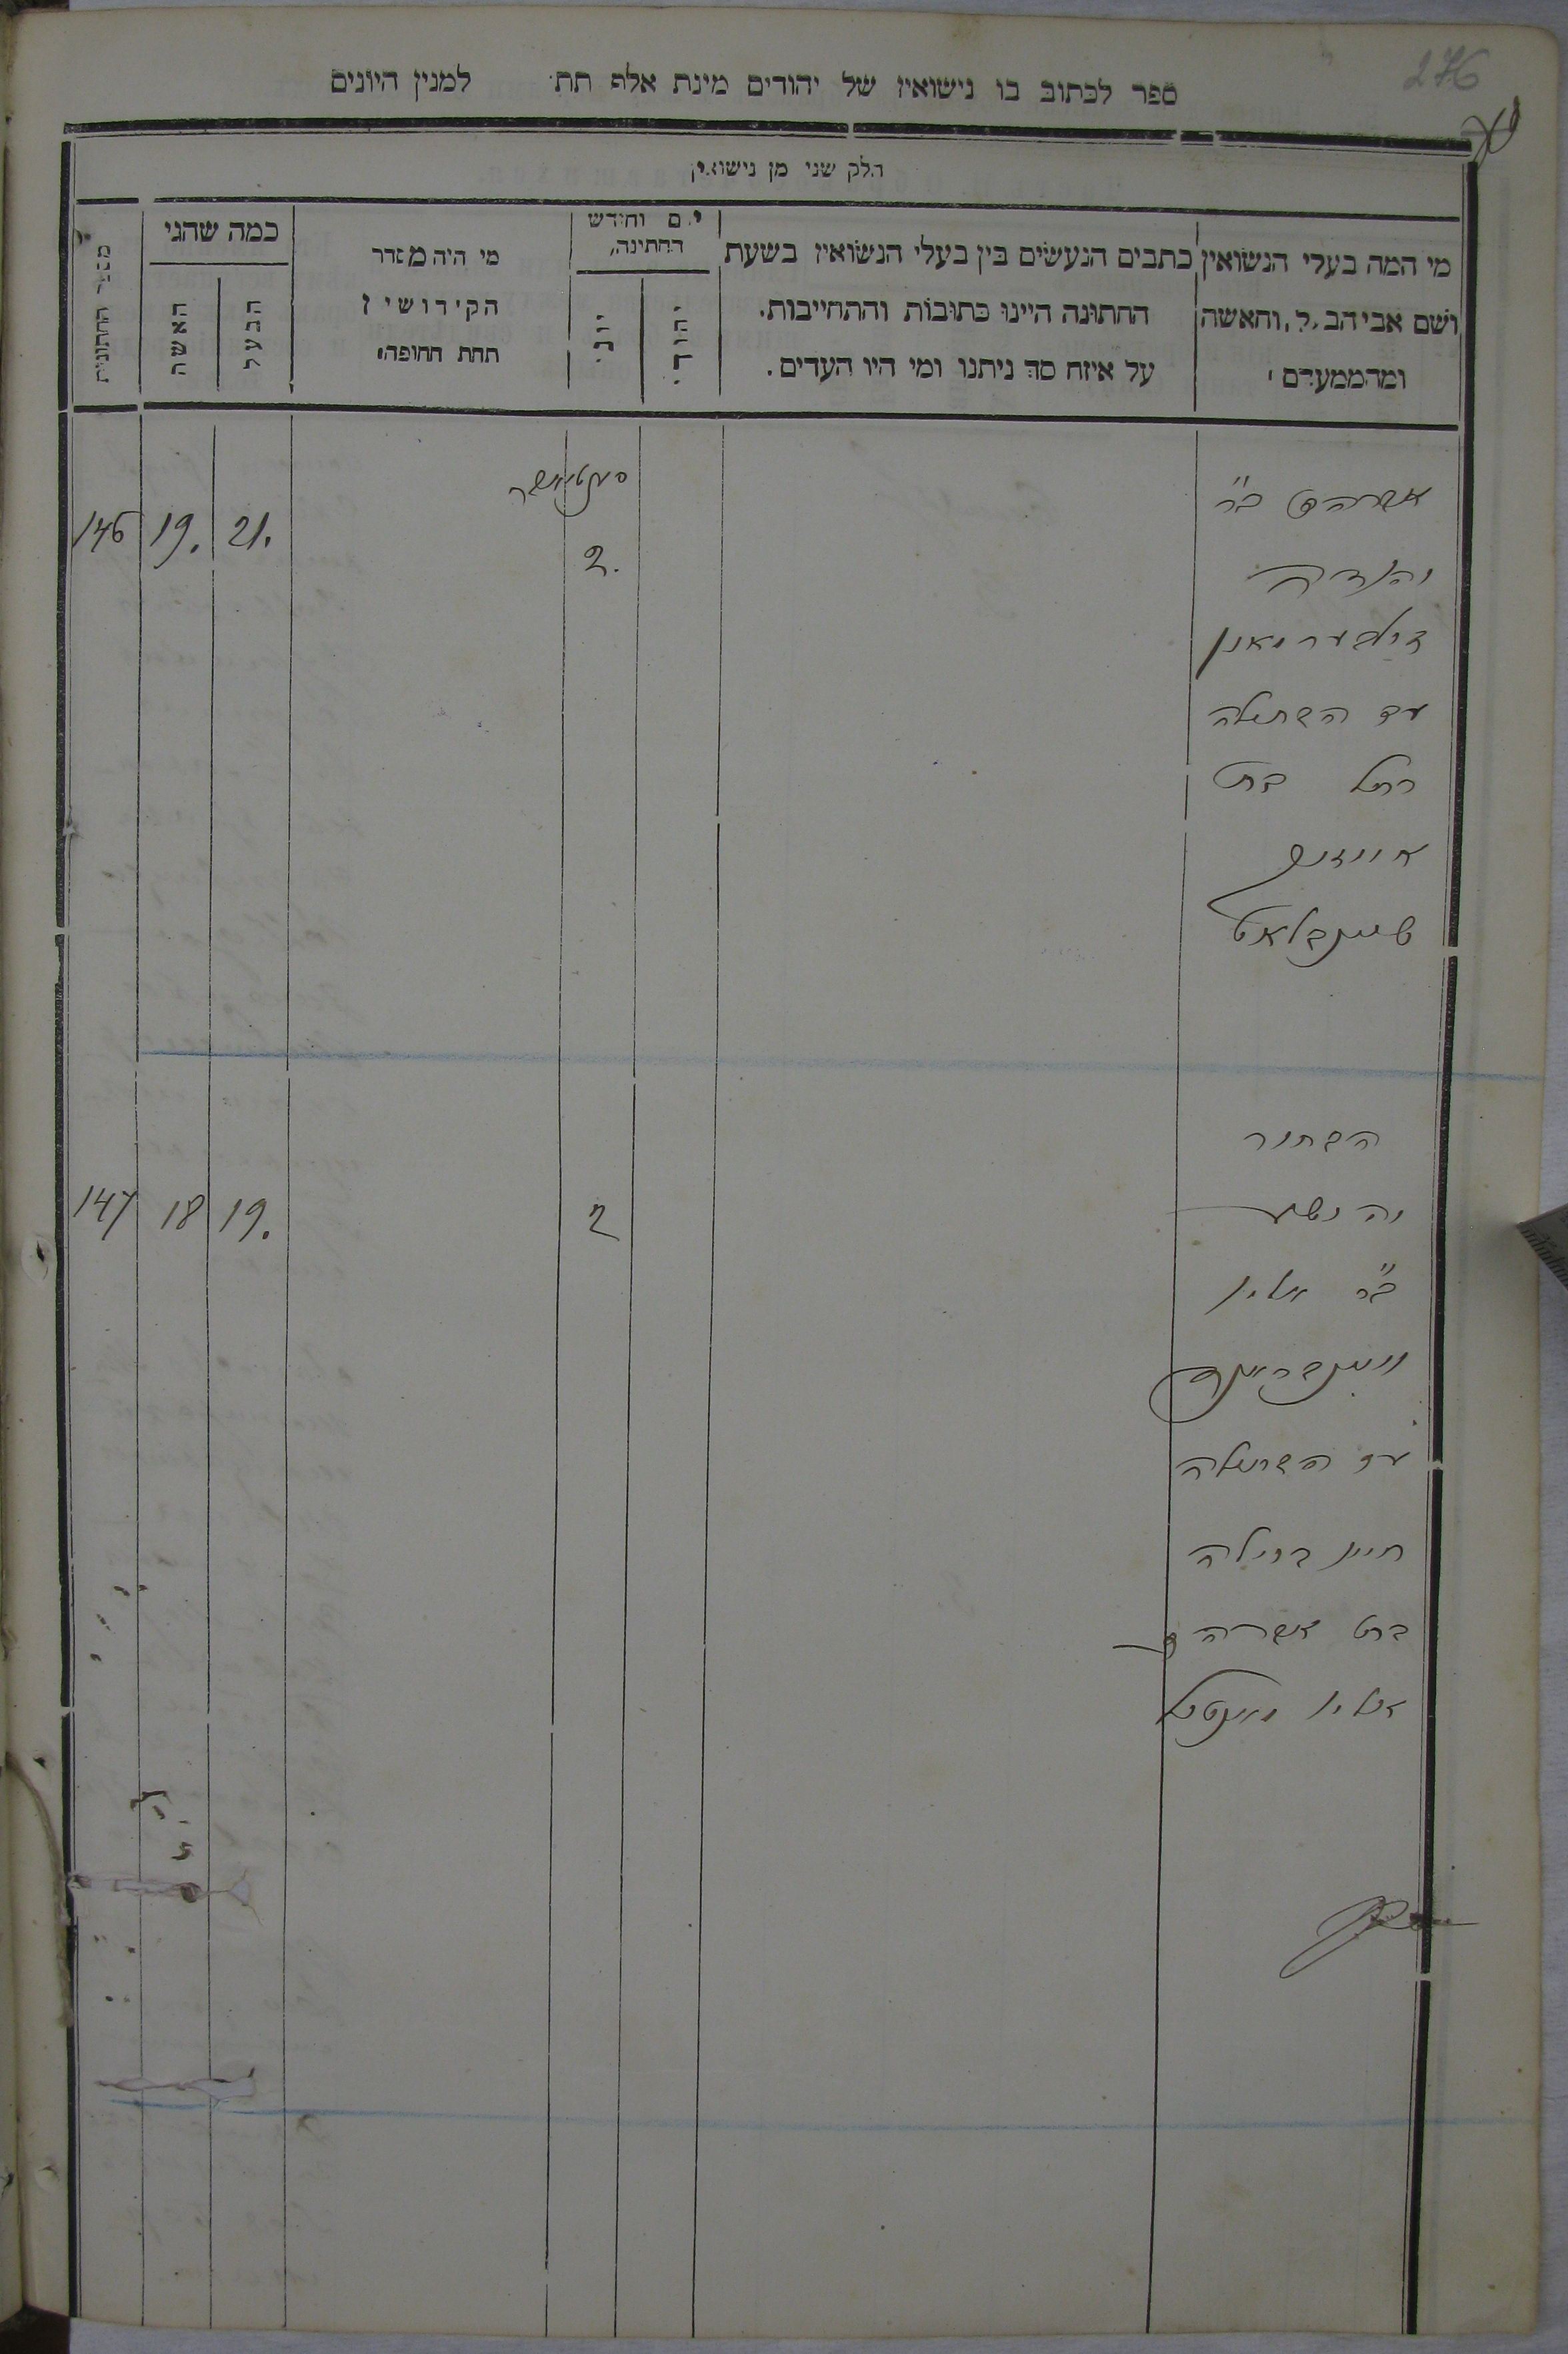 276
ספר לכתוב בו נישואין של יהודים מינת אלף תת׳ למנין היונים
חלק שני מן נישואין
מי המה בעלי הנשואין
ושם אביהב,ל, והאשה
ומהממעדם׳
כתבים הנעשים בין בעלי הנשואין בשעת
החתונה היינו כתובות והתחייבות.
על איזה סך ניתנו ומי היו העדים.
יום וחודש
החתינה,
יהודי.
יוני
מי היה מסדר
הקידושין
תחת החופה׃
כמה שהגי
הבעל
האשה
מספר החתונות
אברהם ב״ר
זילבערמאן
עב הבתולה
רחל בת
אייזיק
שיינבלאט
2.
21.
19.
146
הבחור
יהושע
ב״ר
וויינבריינד
עב הבתולה
חיינ ביילה
בת אברהם
2
19.
18
147